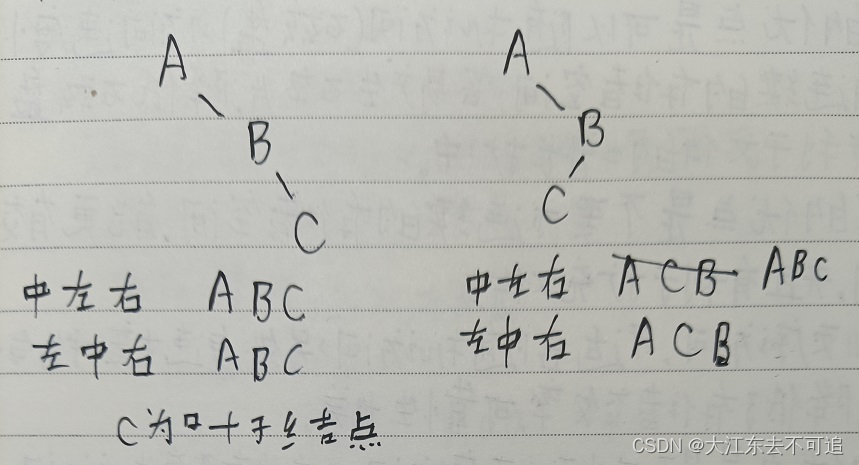 A
B
C
中左右 ABC
左中右 ABC
C为叶子结点
A
B
C
中左右 ACB ABC
左中右 ACB
CSDN @大江东去不可追